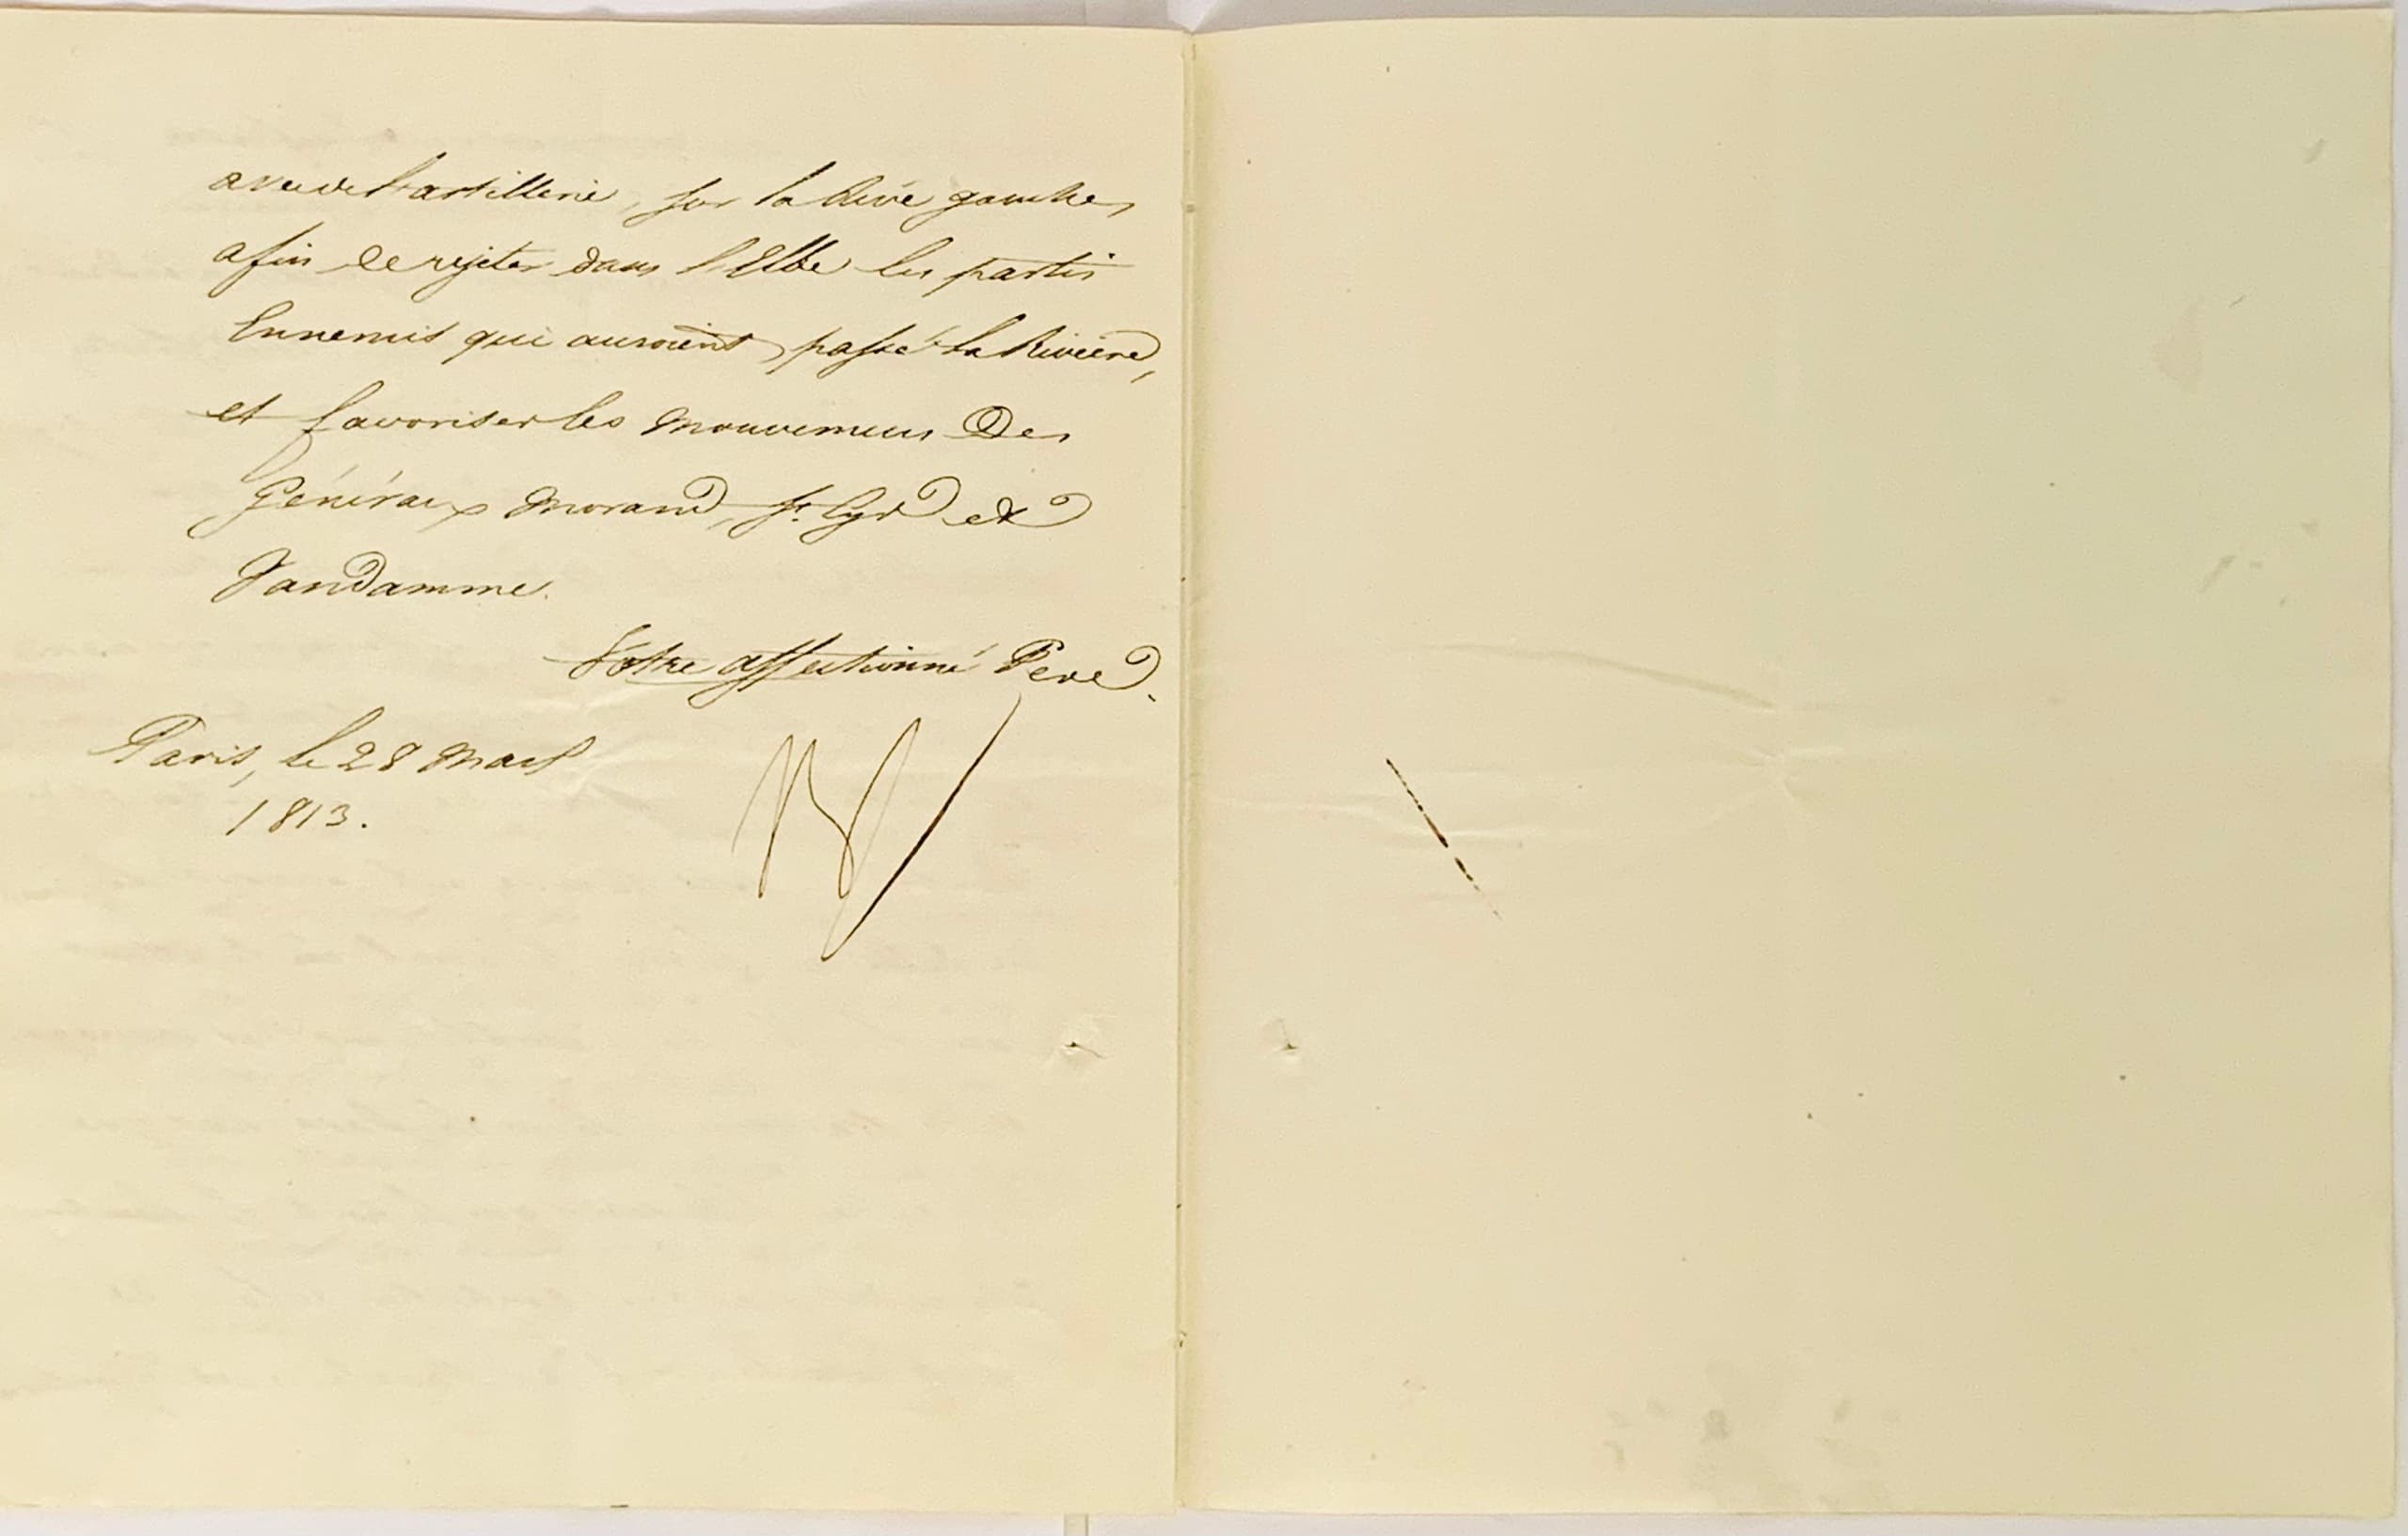 avec de l'artillerie, sur la Rive gauche,
afin de rejeter dans l'Elbe les partis
Ennemis qui auroient passé la Rivière,
et favoriser les mouvemens Des
Généraux Morand, St. Cyr et
Vandamme.
Votre affectionné Père.
Paris, le 28 Mars
1813.